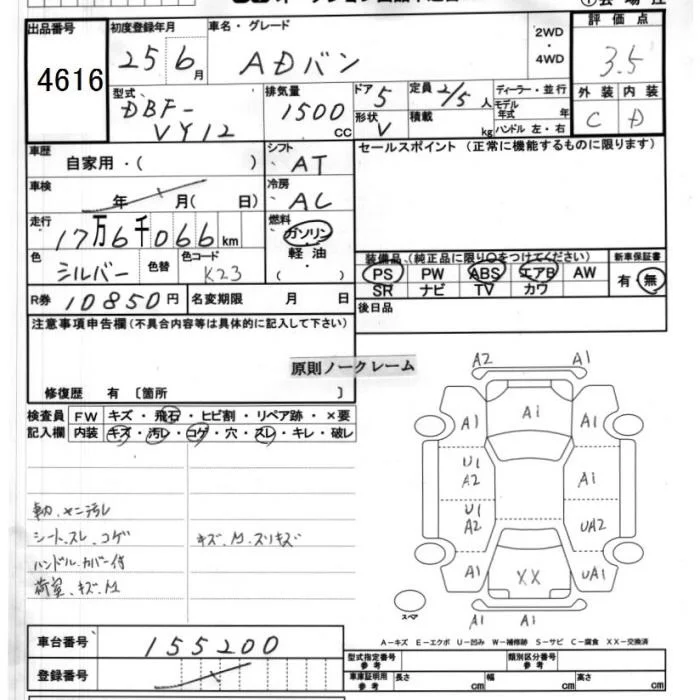 出品番号
4616
初度登録年月
25年6月
車名・グレード
ADバン
2WD
・
4WD
評価点
3.5
外装 内装
C D
型式
DBF-
VY12
排気量
1500
cc
ドア
5
形状
V
定員 2/5人
積載 kg
ディーラー・並行
モデル
年式 年
ハンドル 左・右
車歴
自家用・( )
シフト
AT
セールスポイント (正常に機能するものに限ります)
車検
年 月( 日)
冷房
AC
走行
17万6千066km
燃料
ガソリン
軽油
( )
色
シルバー
色替
色コード
K23
装備品 (純正品に限り○をつけてください)
PS PW ABS エアB AW
SR ナビ TV カワ
新車保証書
有・無
R券 10850円
名変期限 月 日
後日品
注意事項申告欄(不具合内容等は具体的に記入して下さい)
原則ノークレーム
修復歴 有 〔箇所 〕
検査員
記入欄
FW キズ・飛石・ヒビ割・リペア跡・×要
内装 キズ・汚レ・コゲ・穴・スレ・キレ・破レ
シート.スレ.コゲ
キズ.M.スリキズ
ハンドル.カバー付
荷室.キズ.M
A2 A1
A1 A1 A1
U1
A2
A1
U1
A2
UA2
A1 XX UA1
A1 A1
スペア
A-キズ E-エクボ U-凹み W-補修跡 S-サビ C-腐食 XX-交換済
車台番号
155200
登録番号
型式指定番号
参考
類別区分番号
参考
車庫証明用
参考
長さ cm
幅 cm
高さ cm